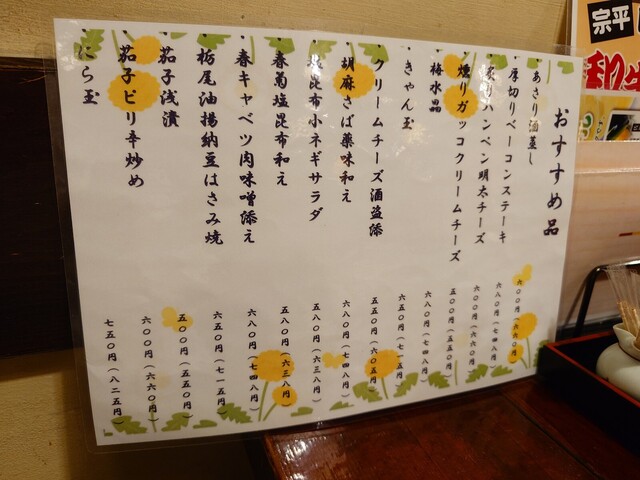 おすすめ品
・あさり酒蒸し 六〇〇円(六六〇円)
・厚切りベーコンステーキ 六八〇円(七四八円)
・炙りハンペン明太チーズ 六〇〇円(六六〇円)
・燻りガッコクリームチーズ 五〇〇円(五五〇円)
・梅水晶 六八〇円(七四八円)
・きゃん玉 六五〇円(七一五円)
・クリームチーズ酒盗添 五五〇円(六〇五円)
・胡麻さば薬味和え 六八〇円(七四八円)
・塩昆布小ネギサラダ 五八〇円(六三八円)
・春菊塩昆布和え 五八〇円(六三八円)
・春キャベツ肉味噌添え 六八〇円(七四八円)
・栃尾油揚納豆はさみ焼 六五〇円(七一五円)
・茄子浅漬 五〇〇円(五五〇円)
・茄子ピリ辛炒め 六〇〇円(六六〇円)
・にら玉 七五〇円(八二五円)
宗平